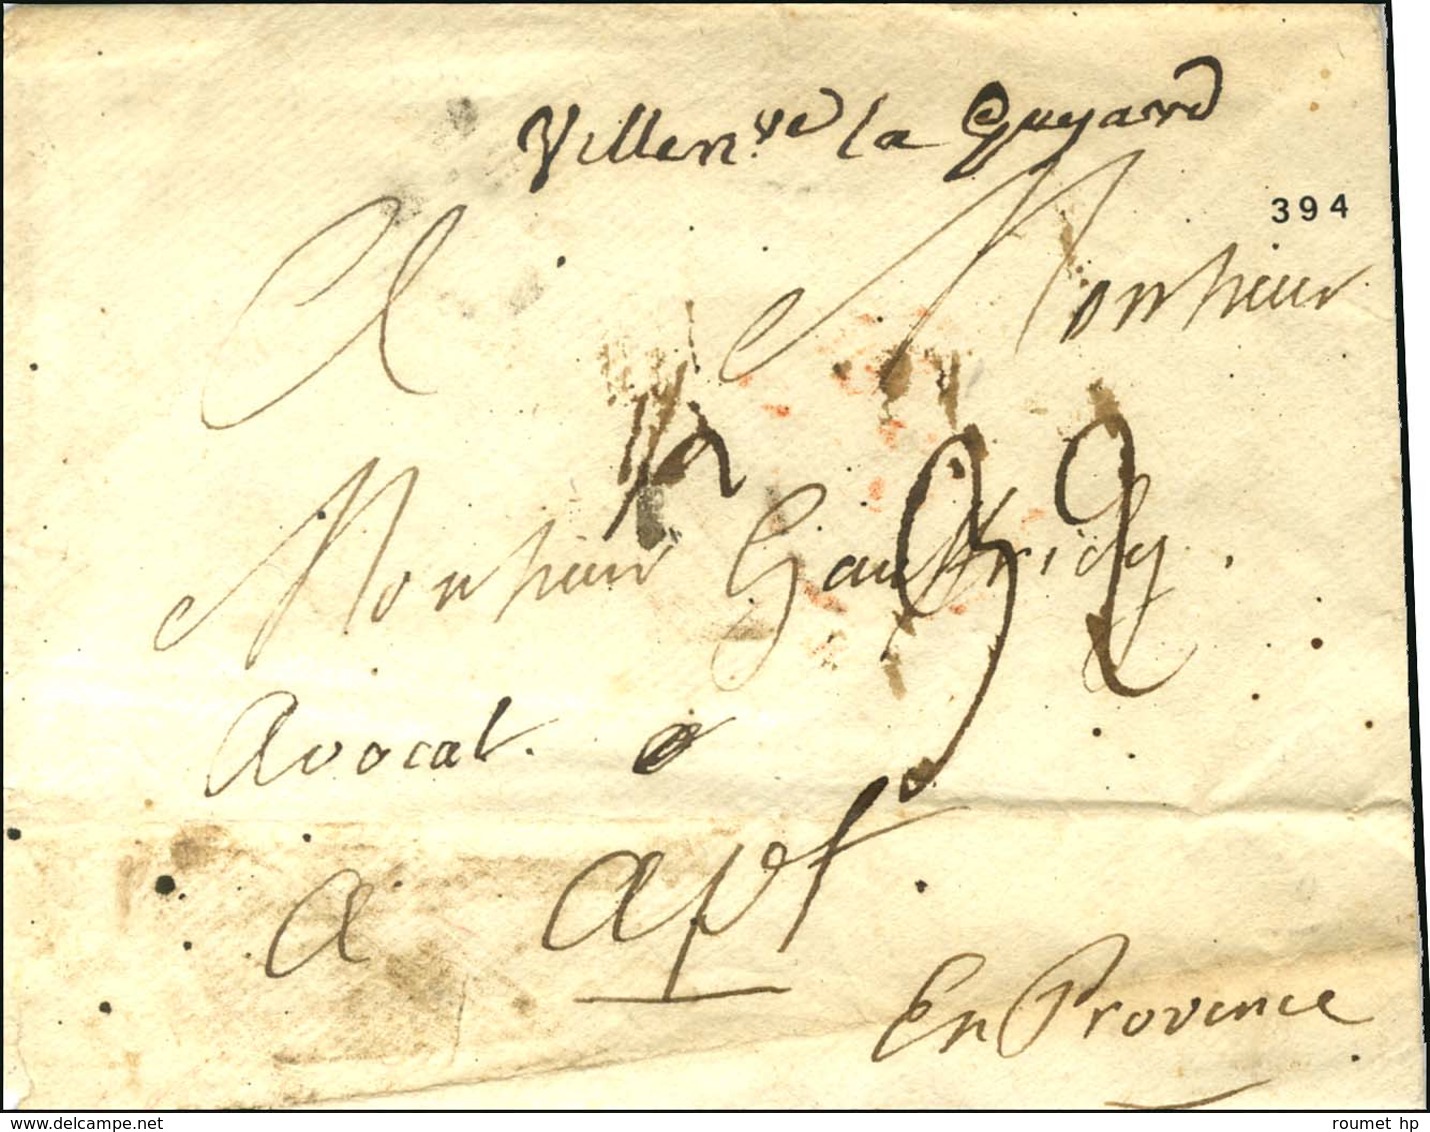 Villen.ve la Guyard
394
A Monsieur
1/2
32
Monsieur Gauffridy.
Avocat.
a apt.
En Provence
www.delcampe.net
roumet hp